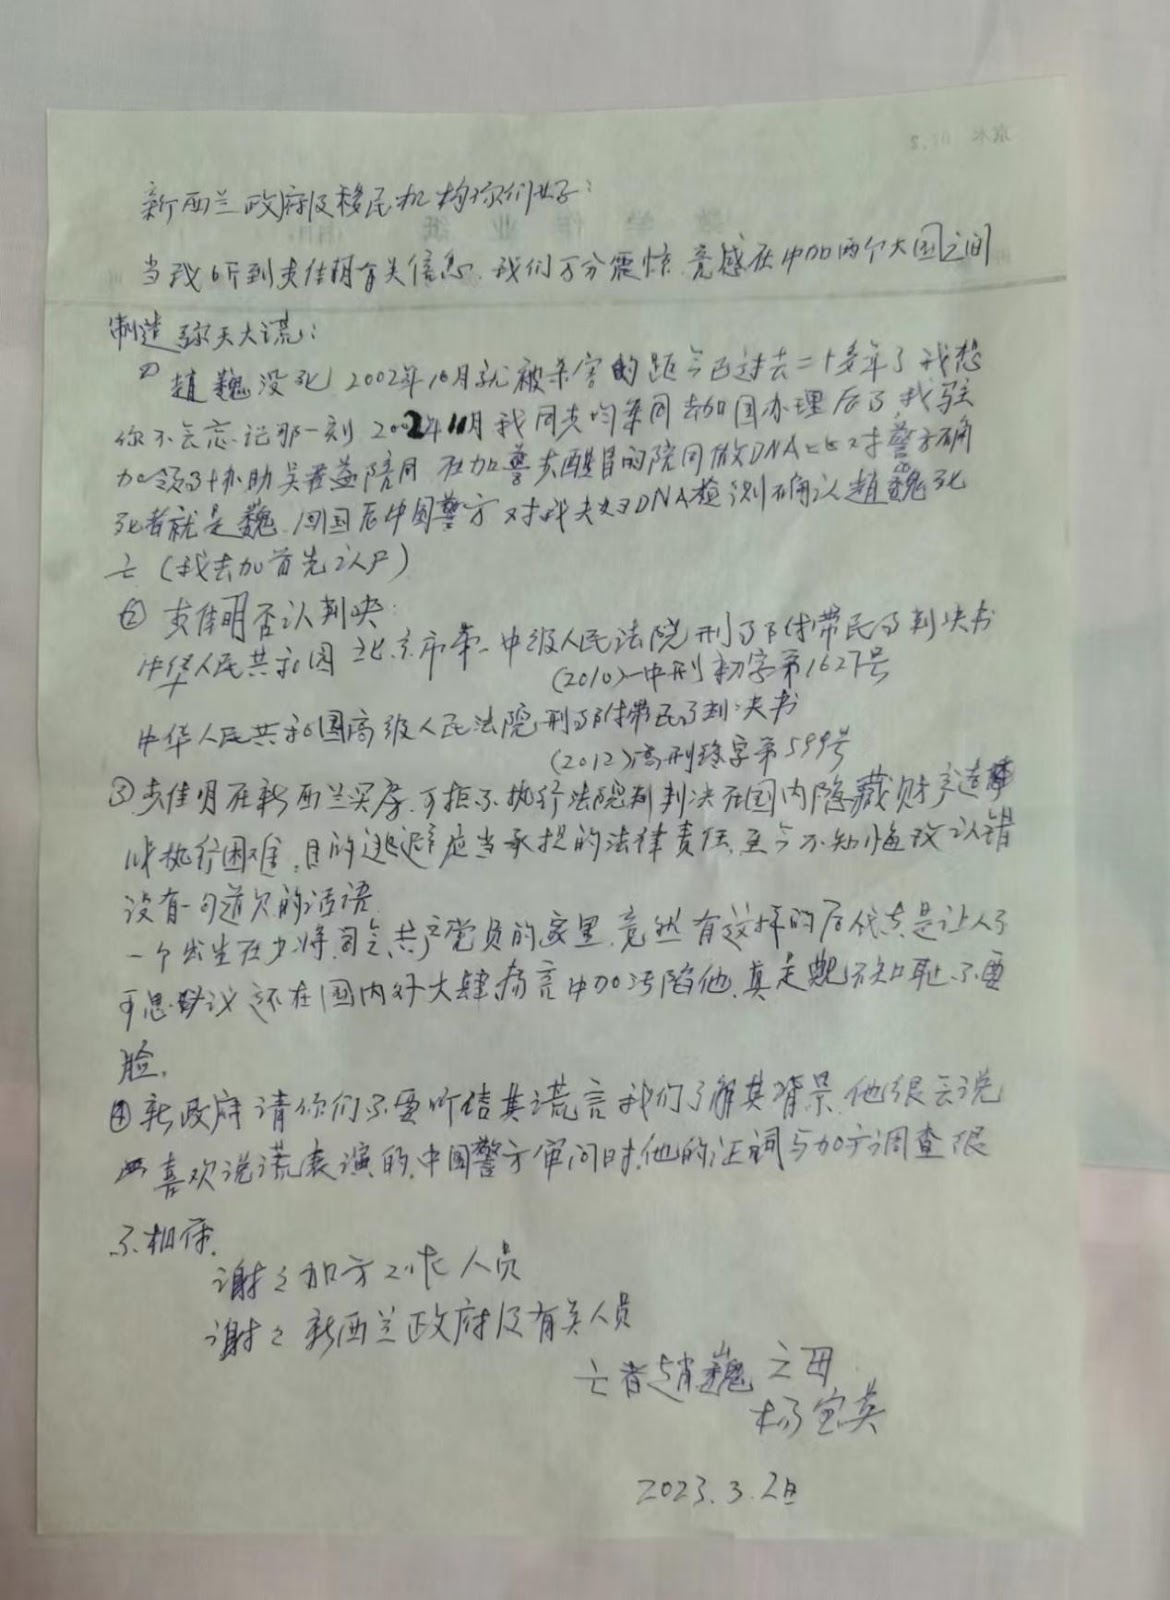 新西兰政府及移民机构你们好:
当我听到李佳明有关信息,我们万分震惊,竟感在中加两个大国之间
制造弥天大谎:
① 趙巍没死,2002年10月就被杀害的距今已过去二十多年了我想
你不会忘记那一刻 2002年11月我同去加国办理后了,我驻
加领了协助吴 陪同 在加警 的陪同做DNA比对警方确
死者就是巍.回国后中国警方对我夫妇DNA检测确认趙巍死
亡(我去加首先认尸)
② 李佳明否认判决:
中华人民共和国北京市第一中级人民法院刑事附带民事判决书
(2010)一中刑初字第1627号
中华人民共和国高级人民法院刑事附带民事判决书
(2012)高刑终字第599号
③ 李佳明在新西兰买房,可拒不执行法院判决在国内隐藏财产造
成执行困难,目的逃避应当承担的法律责任,至今不知悔改认错
没有一句道欠的话语
一个出生在少将司令共产党员的家里,竟然有这样的后代真是让人不
可思议 还在国内外大肆扬言中加污陷他,真是 不知耻不要
脸,
④ 新政府请你们不要听信其谎言我们了解其背景,他很会说
喜欢说谎表演的,中国警方审问时,他的证词与加方调查很
不相符.
谢之加方工作人员
谢之新西兰政府及有关人员
亡者趙巍之母
杨宝英
2023.3.2日